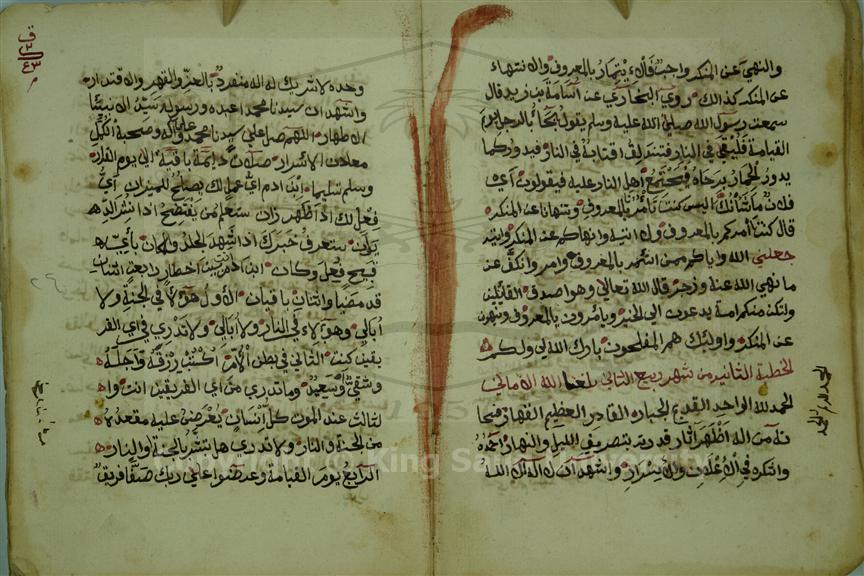 والنهي عن المنكر واجب فالايتمار بالمعروف والانتهاء
عن المنكر كذالك روي البخاري عن اسامة بن زيد قال
سمعت رسول الله صلي الله عليه وسلم يقول يجآ بالرجل يوم
القيامة فيلقي في النار فتندلق اقتابه في النار فيدور كما
يدور الحمار برحاه فيجتمع اهل النار عليه فيقولون اي
فلان ما شأنك اليس كنت تأمر بالمعروف وتنهانا عن المنكر
قال كنت آمركم بالمعروف ولا اتيه وانهاكم عن المنكر واتيه
جعلني الله واياكم ممن ائتمر بالمعروف وامر وانكف عن
ما نهي الله عنه وزجر قال الله تعالي وهو اصدق القائلين
ولتكن منكم امة يدعون الي الخير ويامرون بالمعروف وينهون
عن المنكر واولئك هم المفلحون بارك الله لي ولكم
الخطبة الثانية من شهر ربيع الثاني بلغنا الله الاماني
الحمد لله الواحد القديم الجبار القادر العظيم القهار سبحا
نه من اله اظهر اثار قدرته بتصريف الليل والنهار احمده
واشكره في الاعلان والاسرار واشهد ان لا اله الا الله
وحده لا شريك له اله منفرد بالعز والقهر والاقتدار
واشهد ان سيدنا محمدا عبده ورسوله سيد الانبيا
الاطهار اللهم صل علي سيدنا محمد وعلي اله وصحبه
معادن الاسرار صلاة دايمة باقية الي يوم القرار
وسلم تسليما ابن ادم اي عمل لك يصلح للميزان اي
فعل لك اذا ظهر زان ستعلم من يفتضح اذا نشر الد
يستعرف خبرك اذا شهد الجلد والمكان باي
قبيح فعل وكان ابن ادم انت بين اخطار رابعة اثنان
قد مضيا واثنتان باقيان الاول هؤلاء في الجنة ولا
ابالي وهؤلاء في النار ولا ابالي ولا تدري في اي الفر
يقين كنت الثاني في بطن الام اكتب رزقه واجله
وشقي او سعيد وما تدري من اي الفريقين انت وا
لثالث عند الموت كل انسان يعرض عليه مقعده
من الجنة والنار ولا تدري هل تبشر بالجنة او بالنار
الرابع يوم القيامة وعرضوا علي ربك صفا فريق